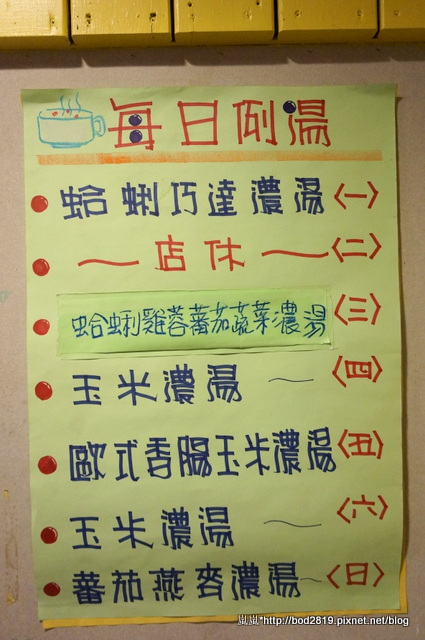 每日例湯
蛤蜊巧達濃湯〈一〉
～店休～〈二〉
蛤蜊雞蓉蕃茄蔬菜濃湯〈三〉
玉米濃湯～〈四〉
歐式香腸玉米濃湯〈五〉
玉米濃湯～〈六〉
蕃茄燕麥濃湯～〈日〉
嵐嵐*http://bod2819.pixnet.net/blog